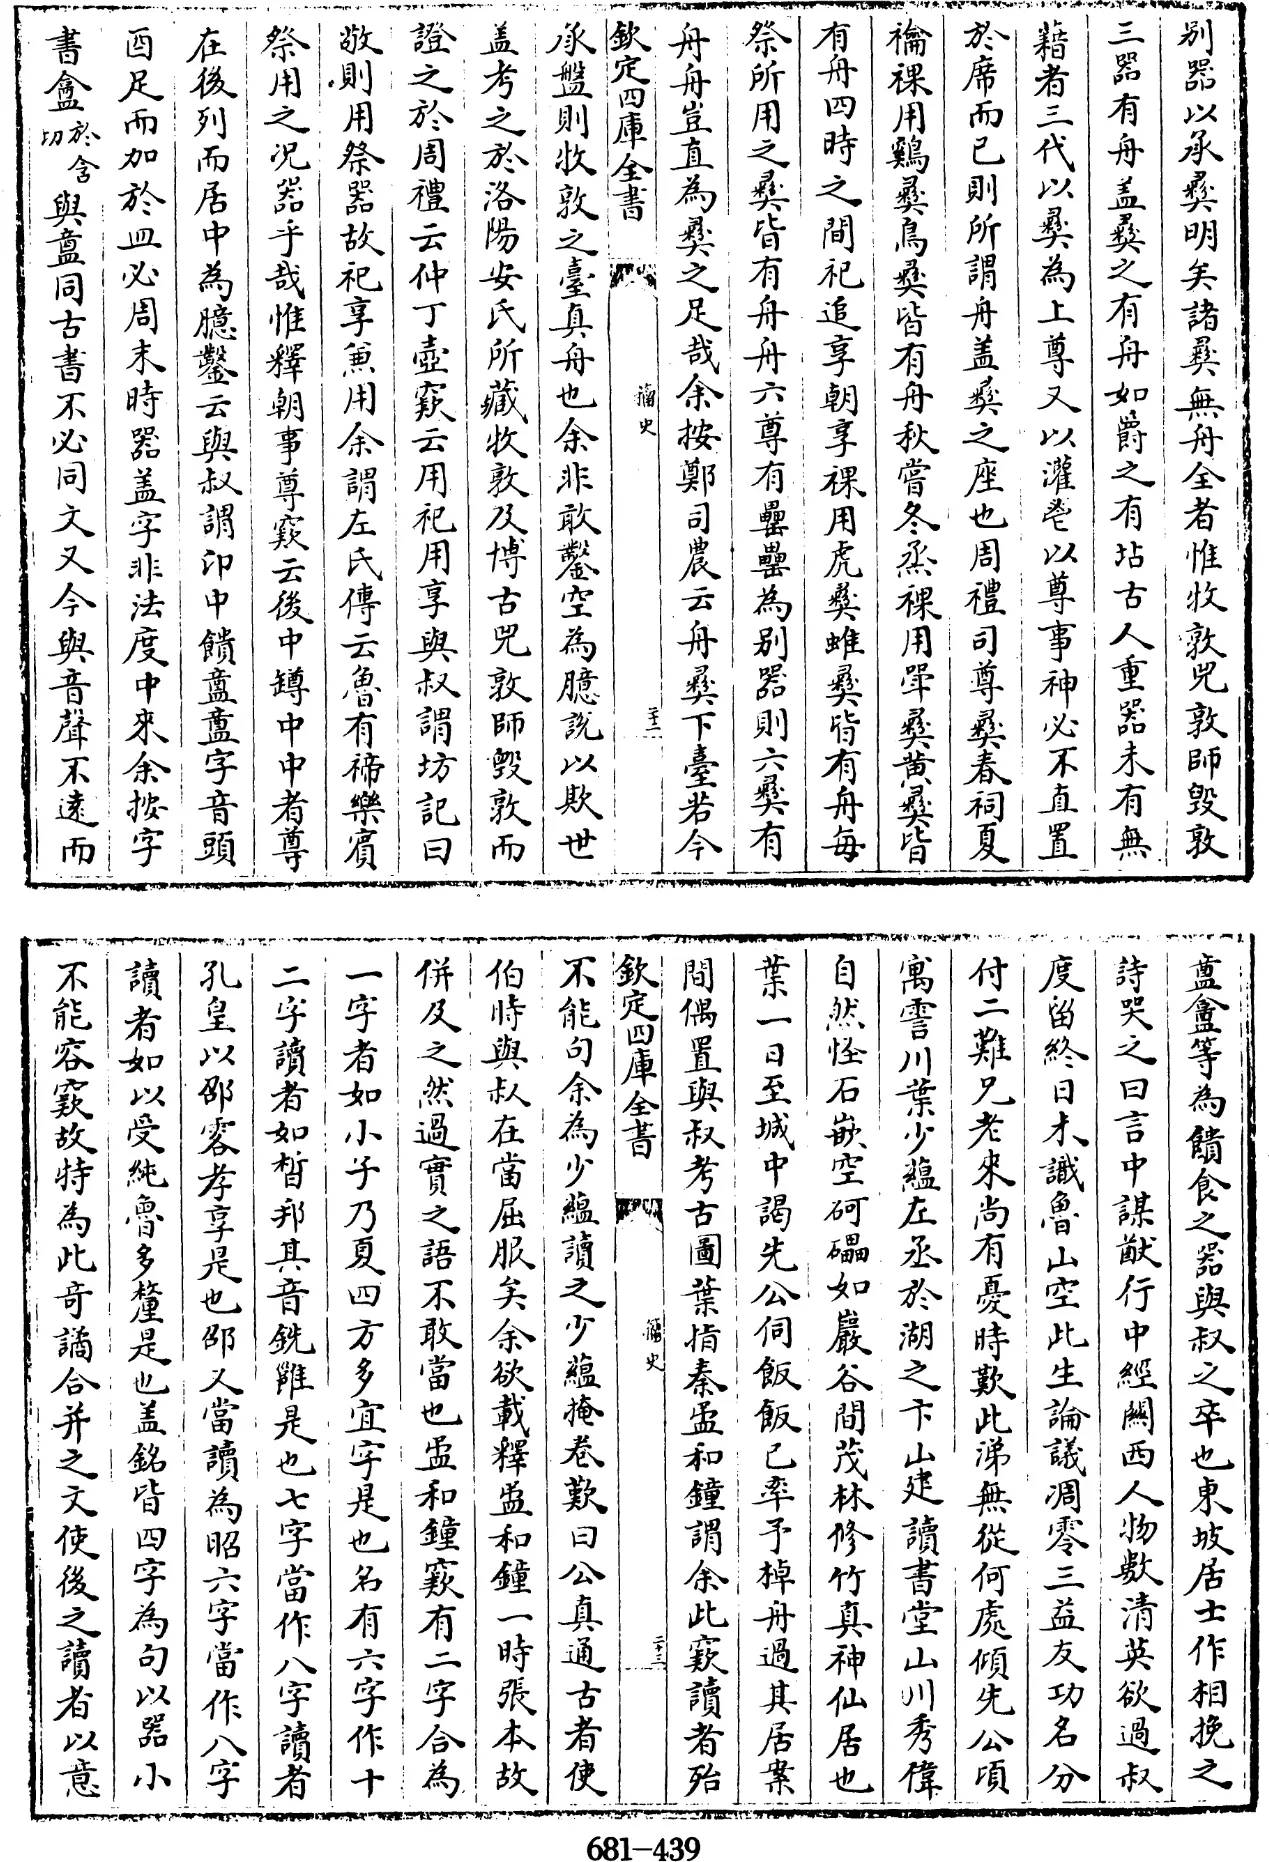 別器以承彜明矣諸彜無舟全者惟牧敦兕敦師毁敦
三器有舟盖彜之有舟如爵之有坫古人重器未有無
藉者三代以彜為上尊又以灌鬯以尊事神必不直置
於席而已則所謂舟盖彜之座也周禮司尊彜春祠夏
禴祼用鷄彜鳥彜皆有舟秋嘗冬烝祼用斝彜黄彜皆
有舟四時之間祀追享朝享祼用虎彜蜼彜皆有舟每
祭所用之彜皆有舟舟六尊有罍罍為别器則六彜有
舟舟豈直為彜之足哉余按鄭司農云舟彜下臺若今
欽定四庫全書
籀史
二十二
承盤則牧敦之臺真舟也余非敢鑿空為臆説以欺世
盖考之於洛陽安氏所藏牧敦及博古兕敦師毁敦而
證之於周禮云仲丁壺窽云用祀用享與叔謂坊記曰
敬則用祭器故祀享兼用余謂左氏傳云魯有禘樂賓
祭用之况器乎哉惟釋朝事尊窽云後中罇中中者尊
在後列而居中為臆鑿云與叔謂卬中饋䀇䀇字音頭
酉足而加於皿必周末時器盖字非法度中來余按字
書盦於含切與䀇同古書不必同文又今與音聲不逺而
䀇盦等為饋食之器與叔之卒也東坡居士作相挽之
詩哭之曰言中謀猷行中經關西人物數清英欲過叔
度留終日未識魯山空此生論議凋零三益友功名分
付二難兄老來尚有憂時歎此涕無從何處傾先公頃
寓霅川葉少藴左丞於湖之卞山建讀書堂山川秀偉
自然怪石嵌空砢礧如巖谷間茂林修竹真神仙居也
葉一日至城中謁先公伺飯飯已率予棹舟過其居案
間偶置與叔考古圖葉指秦盄和鐘謂余此窽讀者殆
欽定四庫全書
籀史
二十三
不能句余為少藴讀之少藴掩卷歎曰公真通古者使
伯時與叔在當屈服矣余欲載釋盄和鐘一時張本故
併及之然過實之語不敢當也盄和鐘窽有二字合為
一字者如小子乃夏四方多宜字是也名有六字作十
二字讀者如晳邦其音銑雝是也七字當作八字讀者
孔皇以邵客孝享是也邵又當讀為昭六字當作八字
讀者如以受純魯多釐是也盖銘皆四字為句以器小
不能容窽故特為此奇譎合并之文使後之讀者以意
681-439